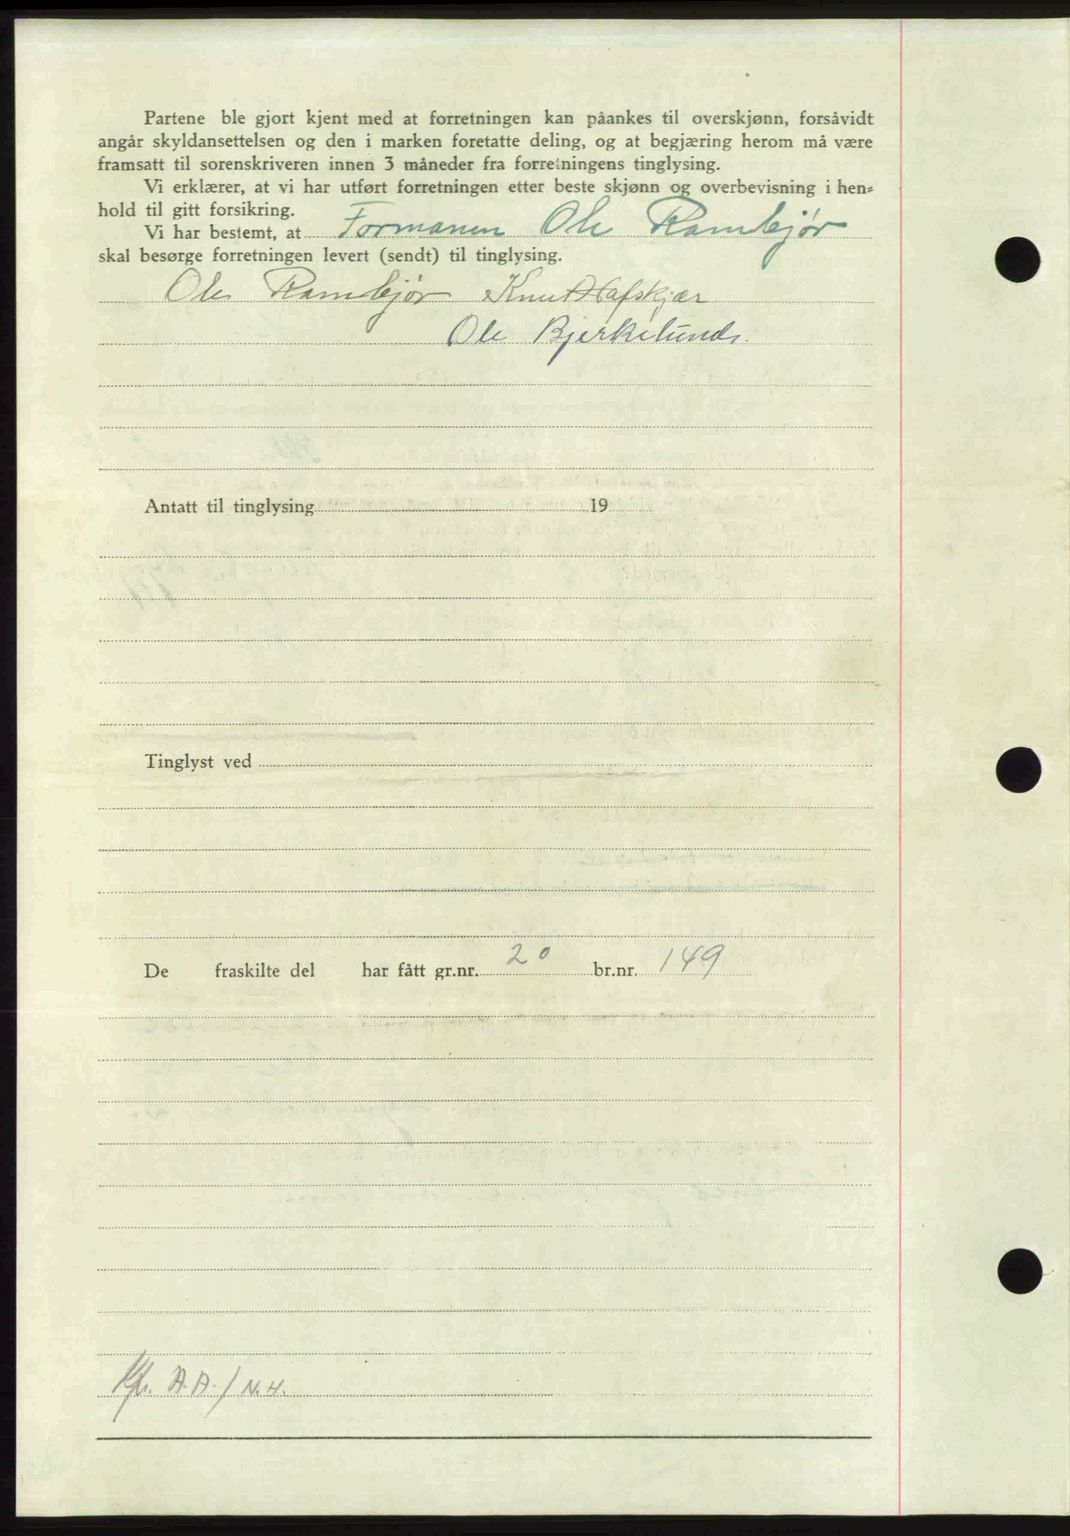 Partene ble gjort kjent med at forretningen kan påankes til overskjønn, forsåvidt
angår skyldansettelsen og den i marken foretatte deling, og at begjæring herom må være
framsatt til sorenskriveren innen 3 måneder fra forretningens tinglysing.
Vi erklærer, at vi har utført forretningen etter beste skjønn og overbevisning i hen-
hold til gitt forsikring.
Vi har bestemt, at Formannen Ole Rambjør
skal besørge forretningen levert (sendt) til tinglysing.
Ole Rambjør Knut Hafskjær
Ole Bjerkelund.
Antatt til tinglysing 19
Tinglyst ved
De fraskilte del har fått gr.nr. 20 br.nr. 149
A.A./N.H.